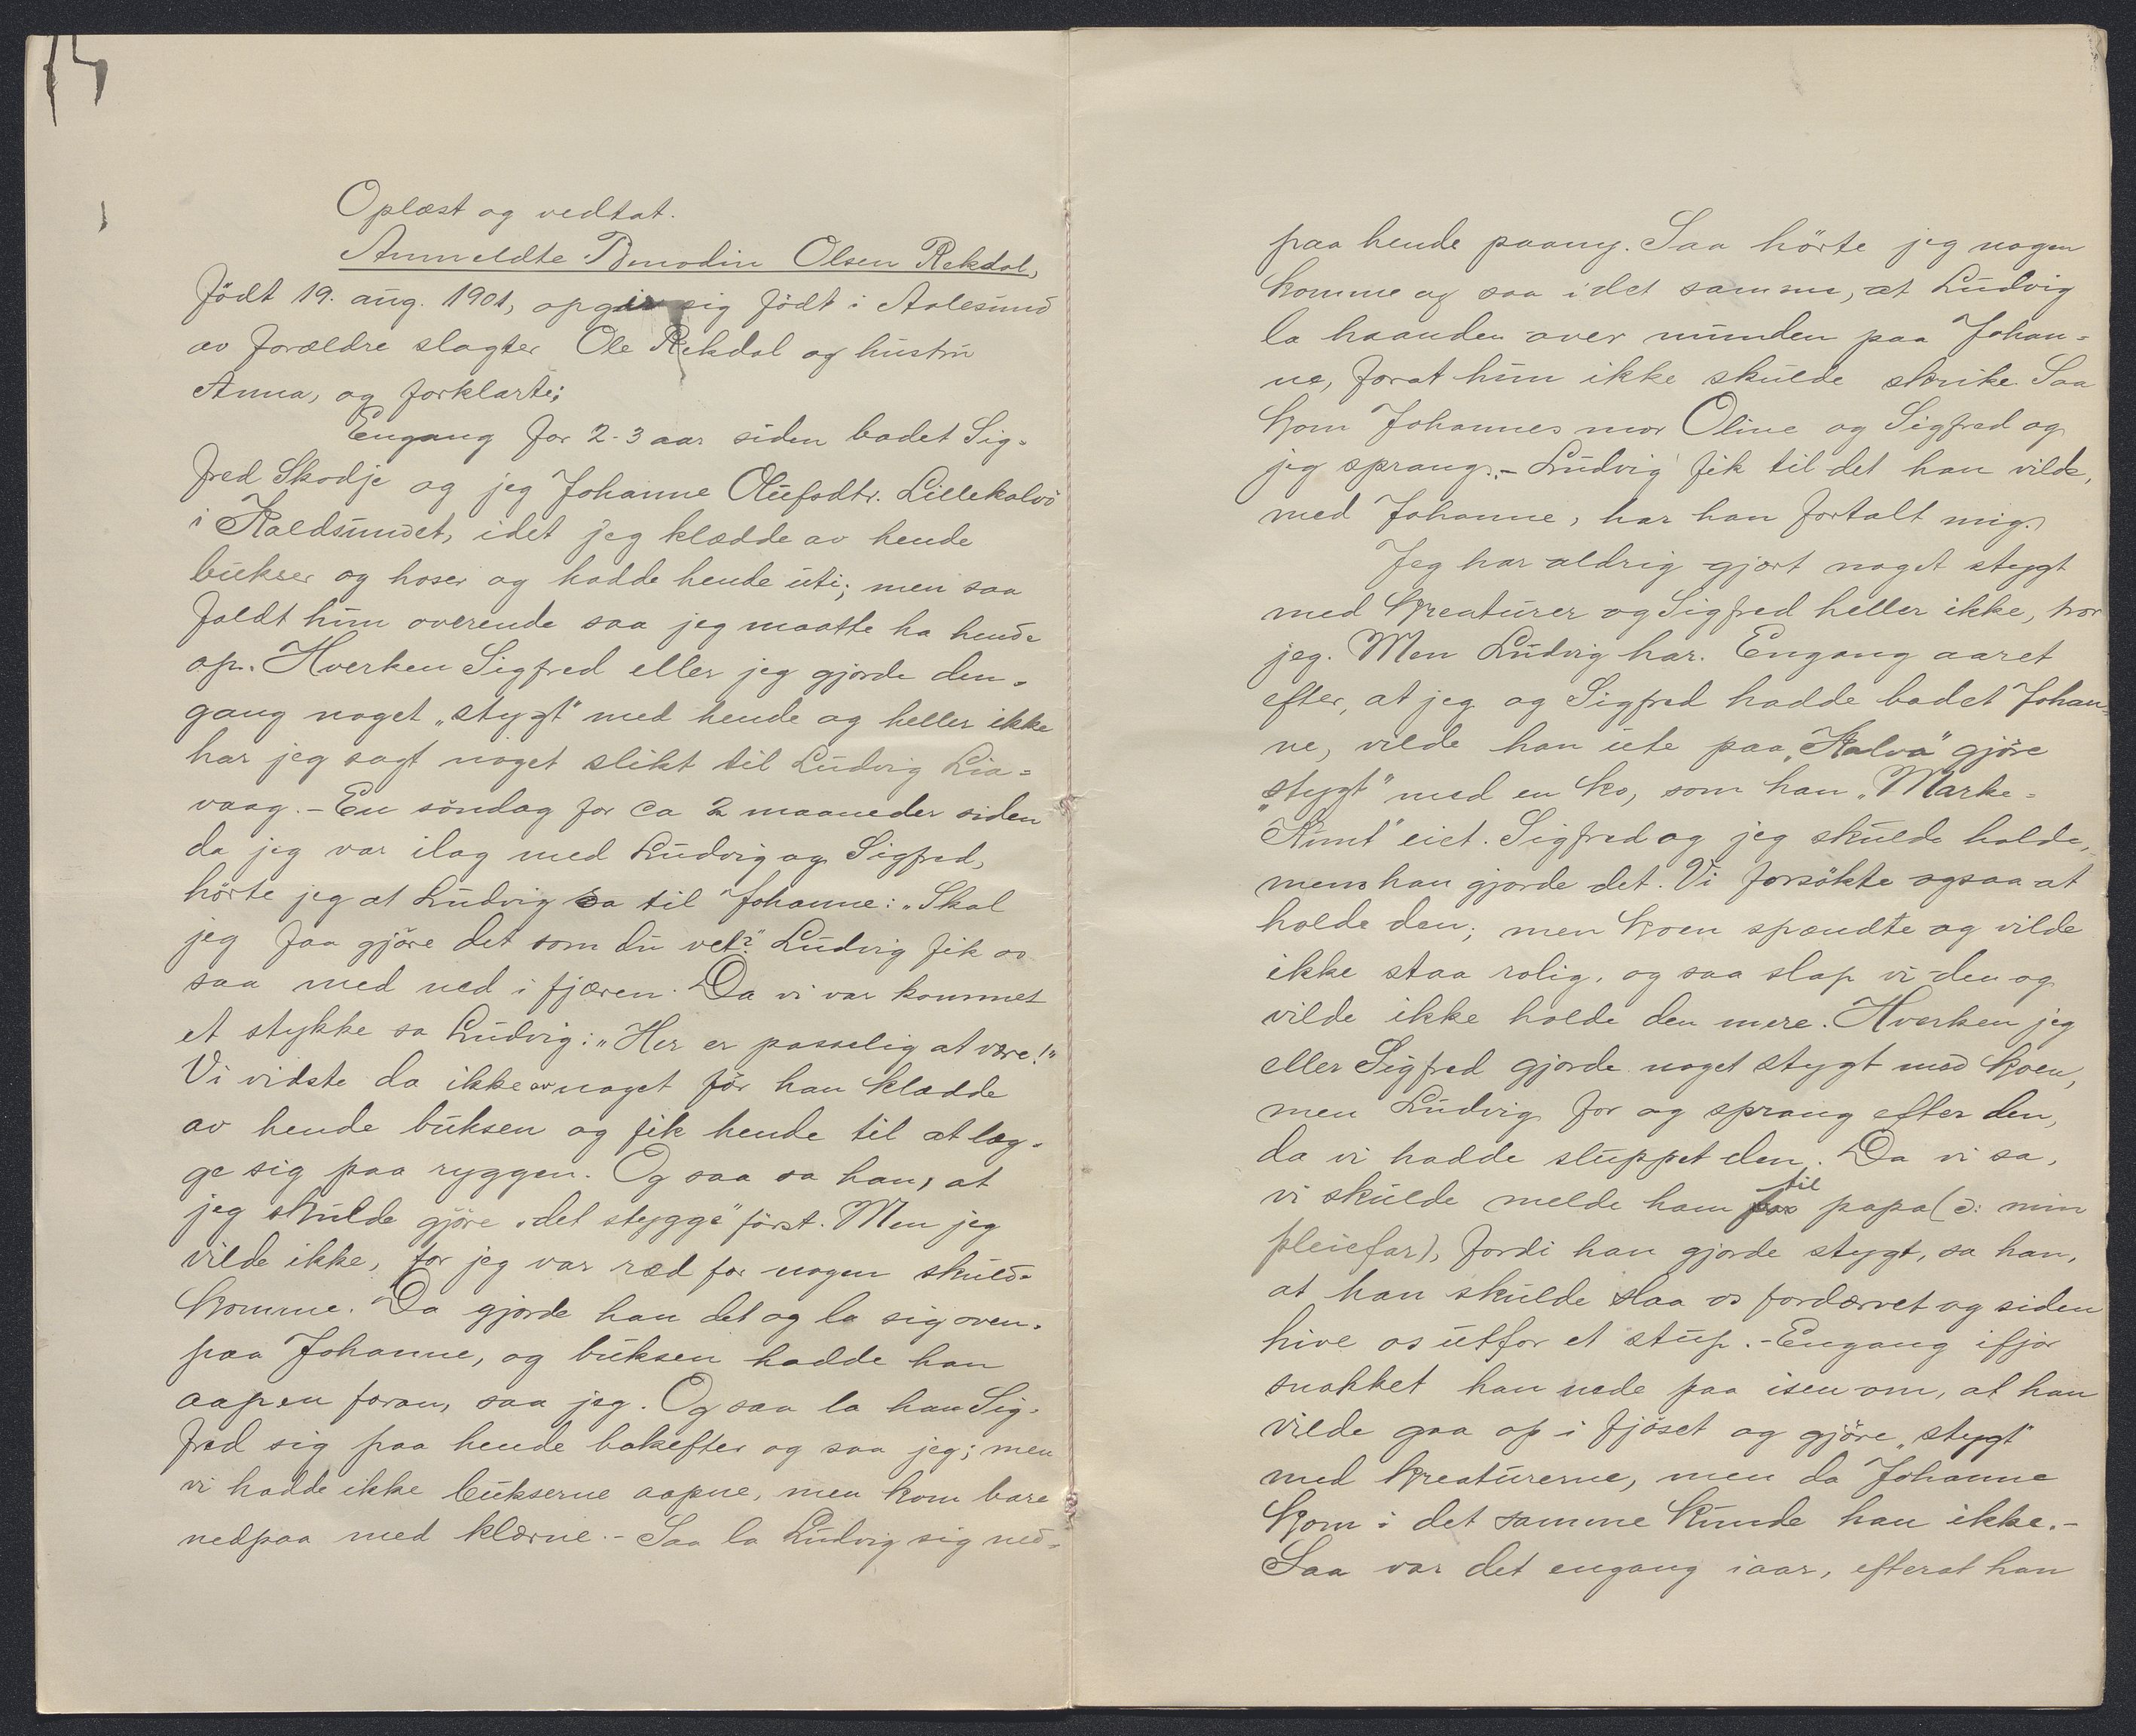 Oplæst og vedtat.
Anmeldte Benodin Olsen Rekdal,
født 19. aug. 1901, opgir sig født i Aalesund
av forældre slagter Ole Rekdal og hustru
Anna, og forklarte:
Engang for 2-3 aar siden badet Sig-
fred Skodje og jeg Johanne Olufsdtr. Lillekalvö
i Kaldsundet, idet jeg klædde av hende
bukser og hoser og hadde hende uti; men saa
faldt hun overende saa jeg maatte ha hende
op. Hverken Sigfred eller jeg gjorde den-
gang noget „stygt" med hende og heller ikke
har jeg sagt noget slikt til Ludvig Lia-
vaag. - En söndag for ca 2 maaneder siden
da jeg var ilag med Ludvig og Sigfred,
hörte jeg at Ludvig sa til Johanne: „Skal
jeg faa gjöre det som du vet?" Ludvig fik os
saa med ned i fjæren. Da vi var kommet
et stykke sa Ludvig: „Her er passelig at være!"
Vi vidste da ikke av noget för han klædde
av hende buksen og fik hende til at læg-
ge sig paa ryggen. Og saa sa han, at
jeg skulde gjöre „det stygge" först. Men jeg
vilde ikke, for jeg var ræd for nogen skulde
komme. Da gjorde han det og la sig oven-
paa Johanne, og buksen hadde han
aapen foran, saa jeg. Og saa la han Sig-
fred sig paa hende bakefter og saa jeg; men
vi hadde ikke bukserne aapne, men kom bare
nedpaa med klærne. - Saa la Ludvig sig ned-
paa hende paany. Saa hörte jeg nogen
komme og saa i det samme, at Ludvig
la haanden over munden paa Johan-
ne, forat hun ikke skulde skrike. Saa
kom Johannes mor Oline og Sigfred og
jeg sprang. - Ludvig fik til det han vilde,
med Johanne, har han fortalt mig.
Jeg har aldrig gjort noget stygt
med kreaturer og Sigfred heller ikke, tror
jeg. Men Ludvig har. Engang aaret
efter, at jeg og Sigfred hadde badet Johan-
ne, vilde han ute paa „Kalva" gjöre
„stygt" med en ko, som han „Marke-
Knut" eiet. Sigfred og jeg skulde holde,
mens han gjorde det. Vi forsökte ogsaa at
holde den; men koen spændte og vilde
ikke staa rolig, og saa slap vi den og
vilde ikke holde den mere. Hverken jeg
eller Sigfred gjorde noget stygt med koen,
men Ludvig for og sprang efter den,
da vi hadde sluppet den. Da vi sa,
vi skulde melde ham til papa (ɔ: min
pleiefar), fordi han gjorde stygt, sa han,
at han skulde slaa os fordærvet og siden
hive os utfor et stup. - Engang ifjor
snakket han nede paa isen om, at han
vilde gaa op i fjöset og gjöre „stygt"
med kreaturerne, men da Johanne
kom i det samme kunde han ikke. -
Saa var det engang iaar, efterat han